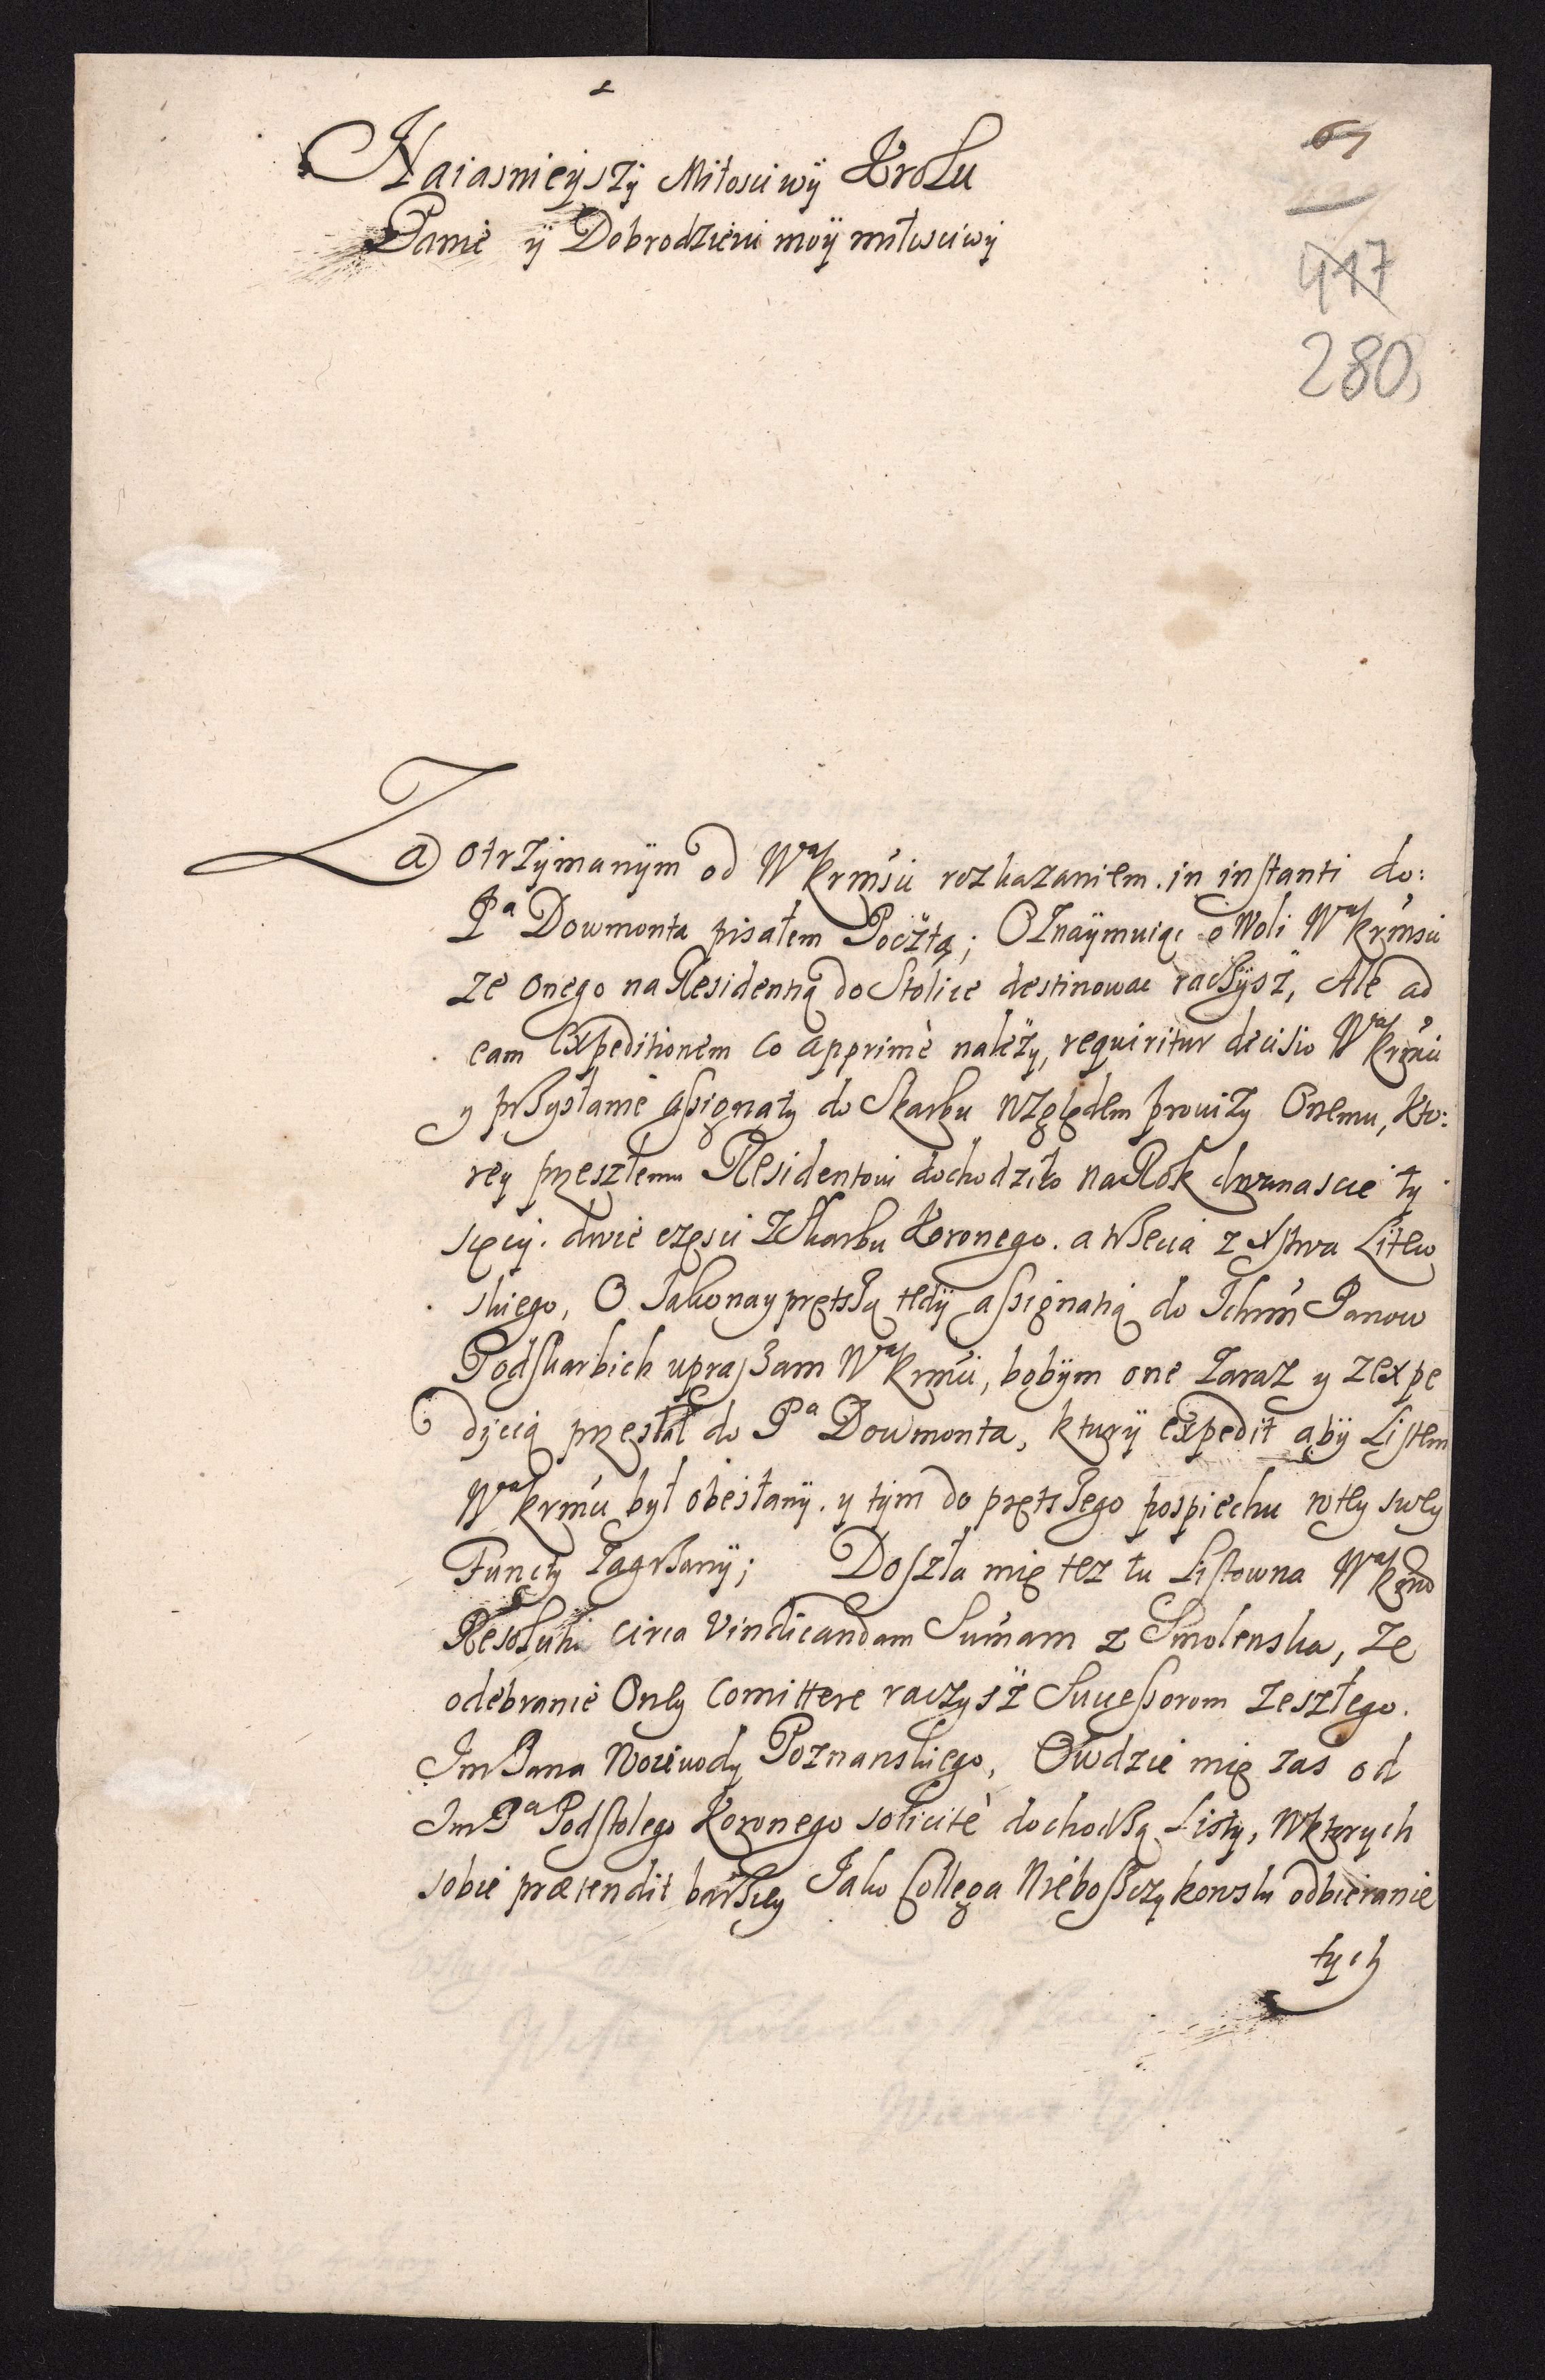 69
417
280
Naiasnieyszy Miłosciwy Krolu
Panie y Dobrodzieiu moy miłosciwy
Za otrzymanym od Wa Krmsci rozkazaniem in instanti do:
Pa Dowmonta pisałem Pocztą; Oznaymuiąc o Woli Wa Krmsci
ze onego na Residentią do Stolice destinowac raczysz, Ale ad
eam Expeditionem co apprimè należy, requiritur decisio Wa Krmci
y przysłanie assignaty do Skarbu względem prouizy Onemu, Kto:
rey przeszłemu Residentowi dochodziło na Rok dwanascie ty
sięcy. dwie częsci z Skarbu Koronego. a trzecia z Xstwa Litew
skiego, O Jakonayprętszą tedy assignatią do Ichm Panow
Podskarbich upraszam Wa Krmci, bobym one zaraz y z expe
dycią przesłał do Pa Dowmonta, ktury expedit aby Listem
Wa Krmci był obesłany. y tym do prętszego pospiechu w tey swey
Funcly zagrzany; Doszła mię tez tu Listowna Wa Krmci
Resolutia circa vindicandam Sumam z Smolenska, ze
odebranie Oney comittere raczysz Successorom zeszłego.
Jm Pana Woiewody Poznanskiego, Owdzie mię zas od
Jm Pa Podstolego Koronego solicitè dochodzą Listy, w ktorych
sobie praetendit barziey Jako Collega Nieboszczykowski odbieranie
tych